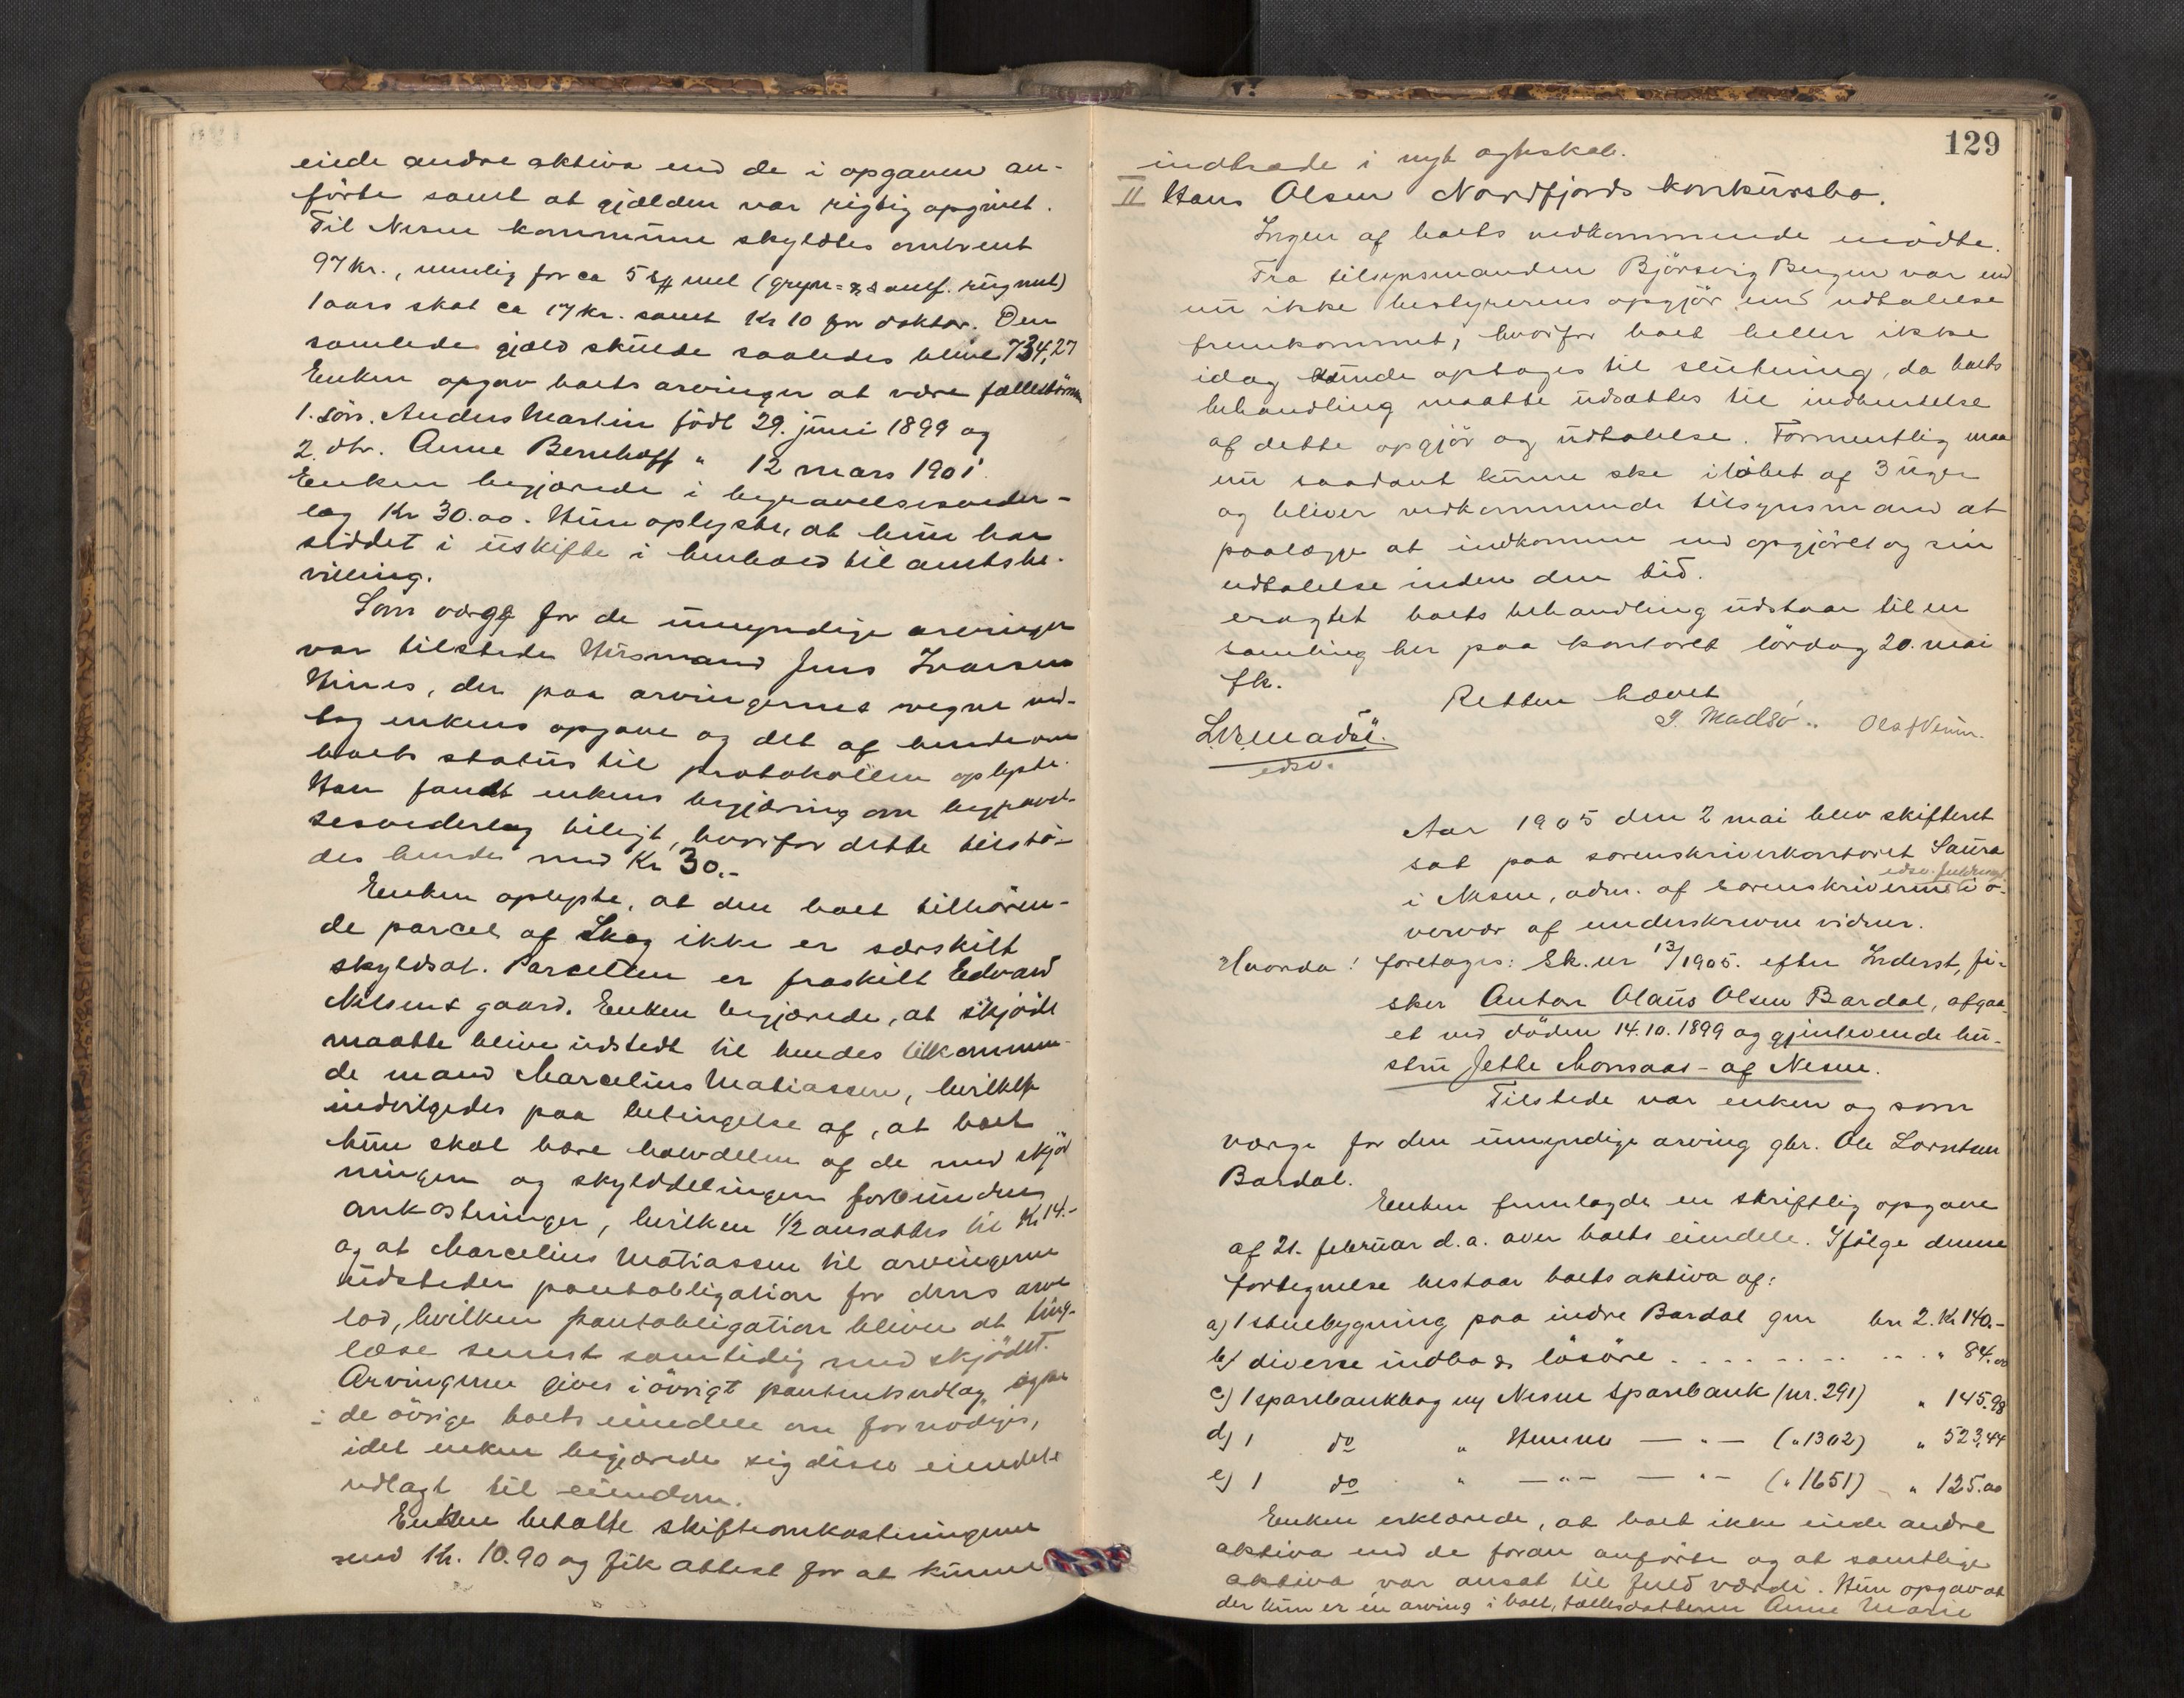 eiede andre aktiva end de i opgaven an-
förte samt at gjælden var rigtig opgivet.
Til Nesne kommune skyldtes omtrent
97 kr., nemlig for ca 5 mel (gryn = & rugmel)
1 aars skat ca 17 kr. samt Kr 10 for doktor. Den
samlede gjæld skulde saaledes blive 734,27
Enken opgav boets arvinger at være fællesbörn
1. sön. Anders Martin födt 29. juni 1899 og
2. dtr. Anne Bernhoff " 12 mars 1901.
Enken begjærede i begravelsesveder-
lag Kr 30.00. Hun oplyste, at hun har
siddet i uskifte i henhold til amtsbe-
villing.
Som værge for de umyndige arvinger
var tilstede Husmand Jens Ivarsen
Hines, der paa arvingernes vegne ved-
tog enkens opgave og det af hende om
boets status til protokollen oplyste.
Han fandt enkens begjæring om begravel-
sesvederlag biligt, hvorfor dette tilstö-
des hende med Kr 30.-
Enken oplyste, at den boet tilhören-
de parcel af Skog ikke er særskilt
skyldsat. Parcellen er fraskilt Edvard
Nilsens gaard. Enken begjærede, at skjöde
maatte blive udstedt til hendes tilkommen-
de mand Marcelius Matiassen, hvilket
indvilgedes paa betingelse af, at boet
kun skal bære halvdelen af de med skjöd
ningen og skylddelingen forbundne
omkostninger, hvilken 1/2 ansættes til Kr 14.-
og at Marcelius Matiassen til arvingerne
udsteder pantobligation for deres arve
lod, hvilken pantobligation bliver at ting-
læse senest samtidig med skjödet.
Arvingerne gives i övrigt panteudlæg ogsaa
i de övrige boets eiendele om fornödiges,
idet enken begjærede sig disse eiendele
udlagt til eiendom.
Enken betalte skifteomkostningerne
med Kr. 10.90 og fik attest for at kunne
129
indtræde i nyt ægteskab.
II Hans Olsen Nordfjords konkursbo.
Ingen af boets vedkommende mödte.
Fra tilsynsmanden Björsvig Bergen var end
nu ikke bestyrerens opgjör med udtalelse
fremkommet, hvorfor boet heller ikke
idag kunde optages til slutning, da boets
behandling maatte udsættes til indhentelse
af dette opgjör og udtalelse. Formentlig maa
nu saadant kunne ske i löbet af 3 uger
og bliver vedkommende tilsynsmand at
paalægge at indkomme med opgjöret og sin
udtalelse inden den tid.
eragtet boets behandling udstaar til en
samling her paa kontoret lördag 20. mai
fk.
Retten hævet
J. Madsö. Olaf Venn.
L. Madsö.
edsv.
Aar 1905 den 2 mai blev skifteret
sat paa sorenskriverkontoret Saura
edsv. fuldmægt.
i Nesne, adm. af sorenskriverens i o-
vervær af underskrevne vidner.
Hvorda! foretages: Sk. nr 13/1905. efter Inderst, fi-
sker Anton Olaus Olsen Bardal, afgaa-
et ved döden 14.10.1899 og gjenlevende hu-
stru Jette Monsaas - af Nesne.
Tilstede var enken og som
værge for den umyndige arving gbr. Ole Lorntsen
Bardal.
Enken fremlagde en skriftlig opgave
af 21. februar d.a. over boets eiendele. Ifölge denne
fortegnelse bestaar boets aktiva af:
a) 1 stuebygning paa indre Bardal gnr bn 2. Kr 140.-
b) diverse indbo & lösöre . . . . . . . . . " 84.00
c) 1 sparebankbog i Nesne Sparebank (nr. 291) " 145.98
d) 1 do " Hemnes — " — (" 1302) " 523,44
e) 1 do " — " — — " — (" 1651) " 125.00
Enken erklærede, at boet ikke eiede andre
aktiva end de foran anförte og at samtlige
aktiva var ansat til fuld værdi. Hun opgav at
der kun er en arving i boet, fællesdatteren Anne Marie